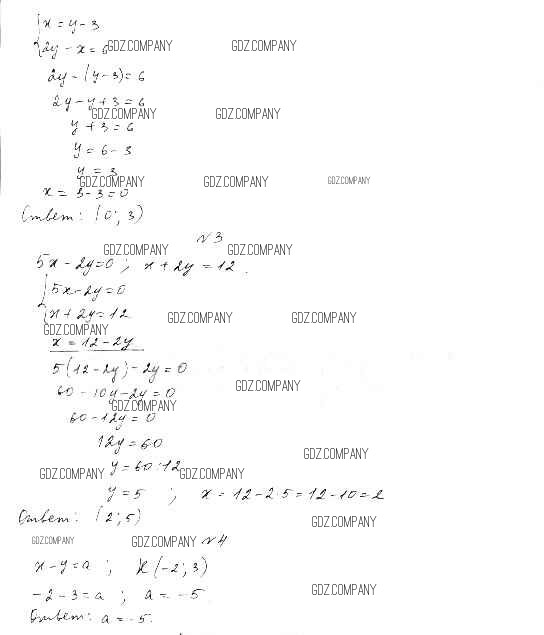 { x = y - 3
2y - x = 6 GDZ.COMPANY GDZ.COMPANY
2y - (y - 3) = 6
2y - y + 3 = 6
GDZ.COMPANY GDZ.COMPANY
y + 3 = 6
y = 6 - 3
y = 3
GDZ.COMPANY GDZ.COMPANY GDZ.COMPANY
x = 3 - 3 = 0
Ответ: (0; 3)
№3
GDZ.COMPANY GDZ.COMPANY
5x - 2y = 0 ; x + 2y = 12.
{ 5x - 2y = 0
x + 2y = 12 GDZ.COMPANY GDZ.COMPANY
GDZ.COMPANY
x = 12 - 2y
5(12 - 2y) - 2y = 0
60 - 10y - 2y = 0 GDZ.COMPANY
GDZ.COMPANY
60 - 12y = 0
12y = 60
GDZ.COMPANY
y = 60 : 12
GDZ.COMPANY GDZ.COMPANY
y = 5 ; x = 12 - 2·5 = 12 - 10 = 2
Ответ: (2; 5) GDZ.COMPANY
GDZ.COMPANY GDZ.COMPANY №4
x - y = a ; K(-2; 3)
-2 - 3 = a ; a = -5 GDZ.COMPANY
Ответ: a = -5.